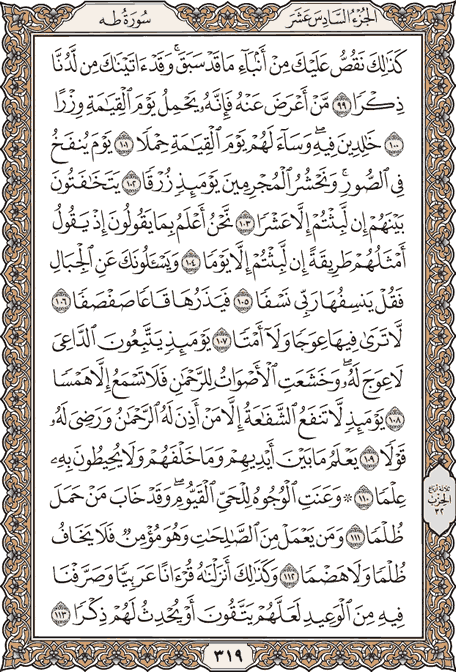 الجزء السادس عشر
سورة طه
كَذَٰلِكَ نَقُصُّ عَلَيْكَ مِنْ أَنۢبَآءِ مَا قَدْ سَبَقَ ۚ وَقَدْ ءَاتَيْنَٰكَ مِن لَّدُنَّا
ذِكْرًا ٩٩ مَّنْ أَعْرَضَ عَنْهُ فَإِنَّهُۥ يَحْمِلُ يَوْمَ ٱلْقِيَٰمَةِ وِزْرًا
١٠٠ خَٰلِدِينَ فِيهِ ۖ وَسَآءَ لَهُمْ يَوْمَ ٱلْقِيَٰمَةِ حِمْلًا ١٠١ يَوْمَ يُنفَخُ
فِى ٱلصُّورِ ۚ وَنَحْشُرُ ٱلْمُجْرِمِينَ يَوْمَئِذٍ زُرْقًا ١٠٢ يَتَخَٰفَتُونَ
بَيْنَهُمْ إِن لَّبِثْتُمْ إِلَّا عَشْرًا ١٠٣ نَّحْنُ أَعْلَمُ بِمَا يَقُولُونَ إِذْ يَقُولُ
أَمْثَلُهُمْ طَرِيقَةً إِن لَّبِثْتُمْ إِلَّا يَوْمًا ١٠٤ وَيَسْـَٔلُونَكَ عَنِ ٱلْجِبَالِ
فَقُلْ يَنسِفُهَا رَبِّى نَسْفًا ١٠٥ فَيَذَرُهَا قَاعًا صَفْصَفًا ١٠٦
لَّا تَرَىٰ فِيهَا عِوَجًا وَلَآ أَمْتًا ١٠٧ يَوْمَئِذٍ يَتَّبِعُونَ ٱلدَّاعِىَ
لَا عِوَجَ لَهُۥ ۖ وَخَشَعَتِ ٱلْأَصْوَاتُ لِلرَّحْمَٰنِ فَلَا تَسْمَعُ إِلَّا هَمْسًا
١٠٨ يَوْمَئِذٍ لَّا تَنفَعُ ٱلشَّفَٰعَةُ إِلَّا مَنْ أَذِنَ لَهُ ٱلرَّحْمَٰنُ وَرَضِىَ لَهُۥ
قَوْلًا ١٠٩ يَعْلَمُ مَا بَيْنَ أَيْدِيهِمْ وَمَا خَلْفَهُمْ وَلَا يُحِيطُونَ بِهِۦ
عِلْمًا ١١٠ ۞ وَعَنَتِ ٱلْوُجُوهُ لِلْحَىِّ ٱلْقَيُّومِ ۖ وَقَدْ خَابَ مَنْ حَمَلَ
ظُلْمًا ١١١ وَمَن يَعْمَلْ مِنَ ٱلصَّٰلِحَٰتِ وَهُوَ مُؤْمِنٌ فَلَا يَخَافُ
ظُلْمًا وَلَا هَضْمًا ١١٢ وَكَذَٰلِكَ أَنزَلْنَٰهُ قُرْءَانًا عَرَبِيًّا وَصَرَّفْنَا
فِيهِ مِنَ ٱلْوَعِيدِ لَعَلَّهُمْ يَتَّقُونَ أَوْ يُحْدِثُ لَهُمْ ذِكْرًا ١١٣
ثلاثة أرباع
الحزب
٣٢
٣١٩